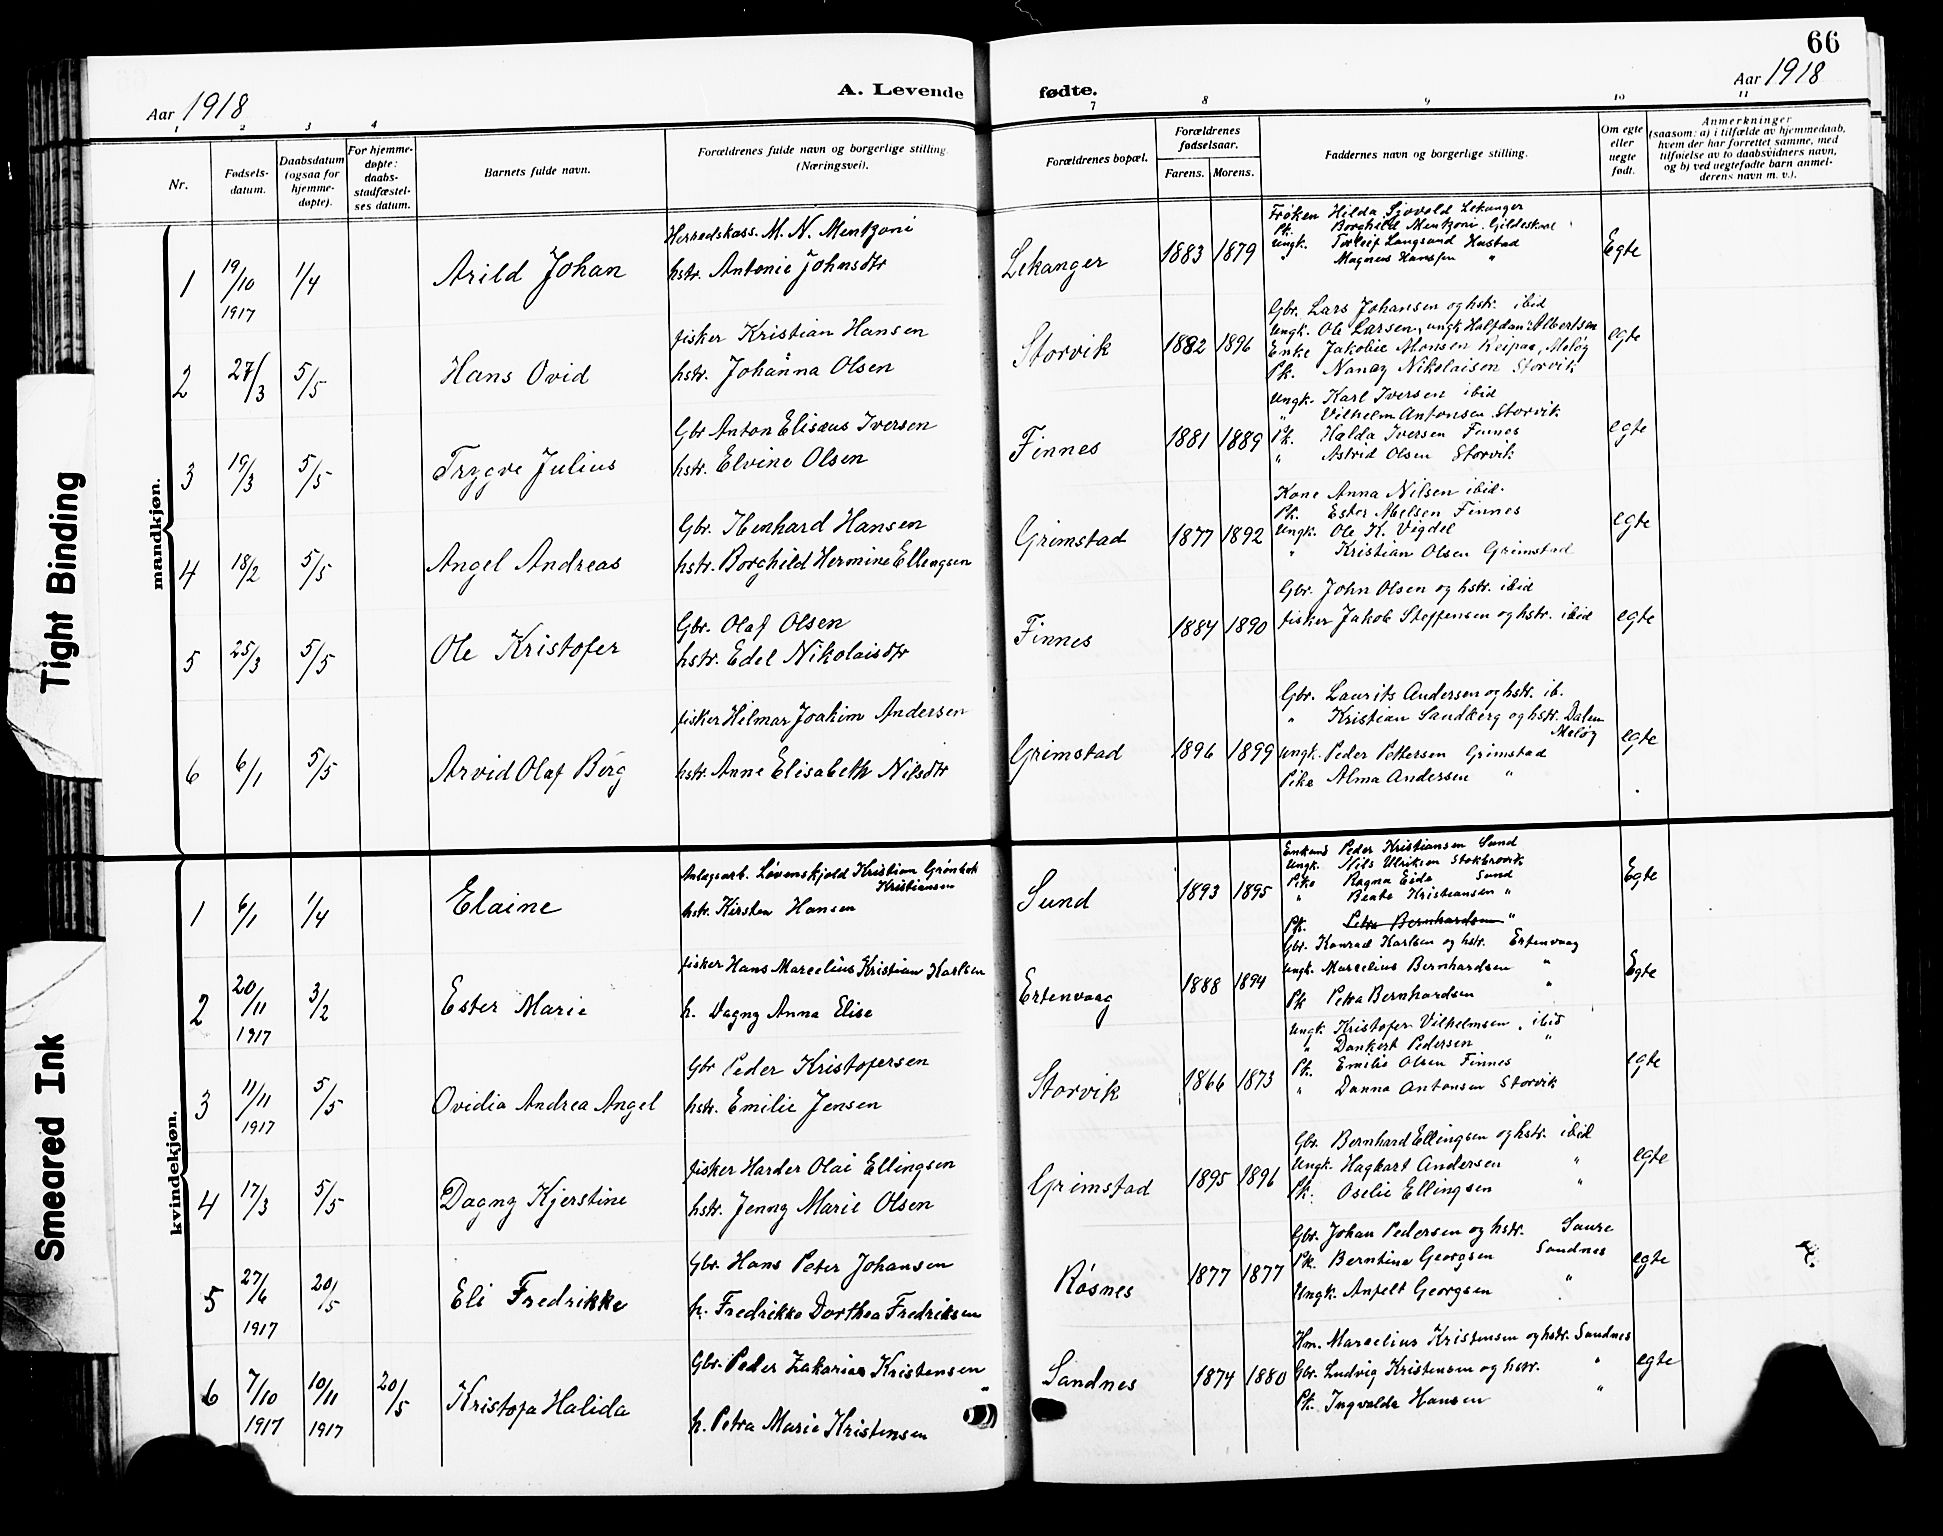 66
Aar 1918
A. Levende fødte.
Aar 1918
1 2 3 4 7 8 9 10 11
Nr.
Fødsels-
datum.
Daabsdatum
(ogsaa for
hjemme-
døpte).
For hjemme-
døpte:
daabs-
stadfæstel-
ses datum.
Barnets fulde navn.
Forældrenes fulde navn og borgerlige stilling.
(Næringsvei).
Forældrenes bopæl.
Forældrenes
fødselsaar.
Farens. Morens.
Faddernes navn og borgerlige stilling.
Om egte
eller
uegte
født.
Anmerkninger
(saasom: a) i tilfælde av hjemmedaab,
hvem der har forrettet samme, med
tilføielse av to daabsvidners navn,
og b) ved uegtefødte barn anmel-
derens navn m. v.).
Tight Binding
Smeared Ink
mandkjøn.
1 19/10 1917 1/4 Arild Johan
Herredskass. M. N. Mentzoni
hstr. Antonie Johnsdtr
Lekanger 1883 1879
Frøken Hilda Sjovold Lekanger
Pk. Borghild Mentzoni Gildeskaal
Ungk. Torleif Langsund Hustad
" Magnus Hanssen "
Egte
2 27/3 5/5 Hans Ovid
fisker Kristian Hansen
hstr. Johanna Olsen
Storvik 1882 1896
Gbr. Lars Johansen og hstr. ibid
Ungk. Ole Larsen, ungk Halfdan Albertsen
Enke Jakobie Monsen Reipaa, Meløy
Pk. Nanay Nikolaisen Storvik
egte
3 19/3 5/5 Trygve Julius
Gbr Anton Elisæus Iversen
hstr. Elvine Olsen
Finnes 1881 1889
Ungk. Karl Iversen ibid
" Vilhelm Antonsen Storvik
Pk. Halda Iversen Finnes
" Astrid Olsen Storvik
egte
4 18/2 5/5 Angel Andreas
Gbr. Hansen
hstr. Borghild Hermine Ellingsen
Grimstad 1877 1892
Kone Anna Nilsen ibid.
Pk. Ester Nielsen Finnes
Ungk. Ole K. Vigdel
" Kristian Olsen Grimstad
egte
5 25/3 5/5 Ole Kristofer
Gbr. Olaf Olsen
hstr. Edel Nikolaisdtr
Finnes 1884 1890
Gbr. John Olsen og hstr. ibid
fisker Jakob Steffensen og hstr. ibid
egte
6 6/1 5/5 Arvid Olaf Berg
fisker Hilmar Joakim Andersen
hstr. Anne Elisabeth Nilsdtr
Grimstad 1896 1899
Gbr. Laurits Andersen og hstr. ib.
" Kristian Sandberg og hstr. Dalen
Meløy
Ungk. Peder Pettersen Grimstad
Pike Alma Andersen "
egte
kvindekjøn.
1 6/1 1/4 Elaine
Anlægsarb. Løvenskjold Kristian Grønbek
Kristiansen
hstr. Kirsten Hansen
Sund 1893 1895
Enkem. Peder Kristiansen Sund
Ungk. Nils Ulriksen
Pike Ragna Eide Sund
" Beate Kristiansen "
Pk. Petra Bernhardsen "
Egte
2 20/11 1917 3/2 Ester Marie
fisker Hans Marcelius Kristian Karlsen
h. Dagny Anna Elise
Ertenvaag 1888 1894
Gbr. Konrad Karlsen og hstr. Ertenvaag
Ungk. Marselius Bernhardsen "
Pk Petra Bernhardsen "
Egte
3 11/11 1917 5/5 Ovidia Andrea Angel
Gbr Peder Kristofersen
hstr. Emilie Jensen
Storvik 1866 1873
Ungk. Kristofer Vilhelmsen, ibid
" Dankert Pedersen "
Pk. Emilie Olsen Finnes
" Danna Antonsen Storvik
egte
4 17/3 5/5 Dagny Kjerstine
fisker Harder Olai Ellingsen
hstr. Jenny Marie Olsen
Grimstad 1895 1896
Gbr. Bernhard Ellingsen og hstr. ibid
Ungk. Hagbart Andersen "
Pk. Oselie Ellingsen "
egte
5 27/6 1917 20/5 Eli Fredrikke
Gbr. Hans Peter Johansen
h. Fredrikke Dorthea Fredriksen
Røsnes 1877 1877
Gbr. Johan Pedersen og hstr. Saure
Pk. Berntine Georgsen Sandnes
Ungk. Anfelt Georgsen "
egte
6 7/10 1917 10/11 1917 20/5 Kristofa Halida
Gbr. Peder Zakarias Kristensen
h. Petra Marie Kristensen
Sandnes 1874 1880
Hm. Marcelius Kristensen og hstr. Sandnes
Gbr. Ludvig Kristensen og hstr. "
Pk. Ingvalda Hansen "
egte